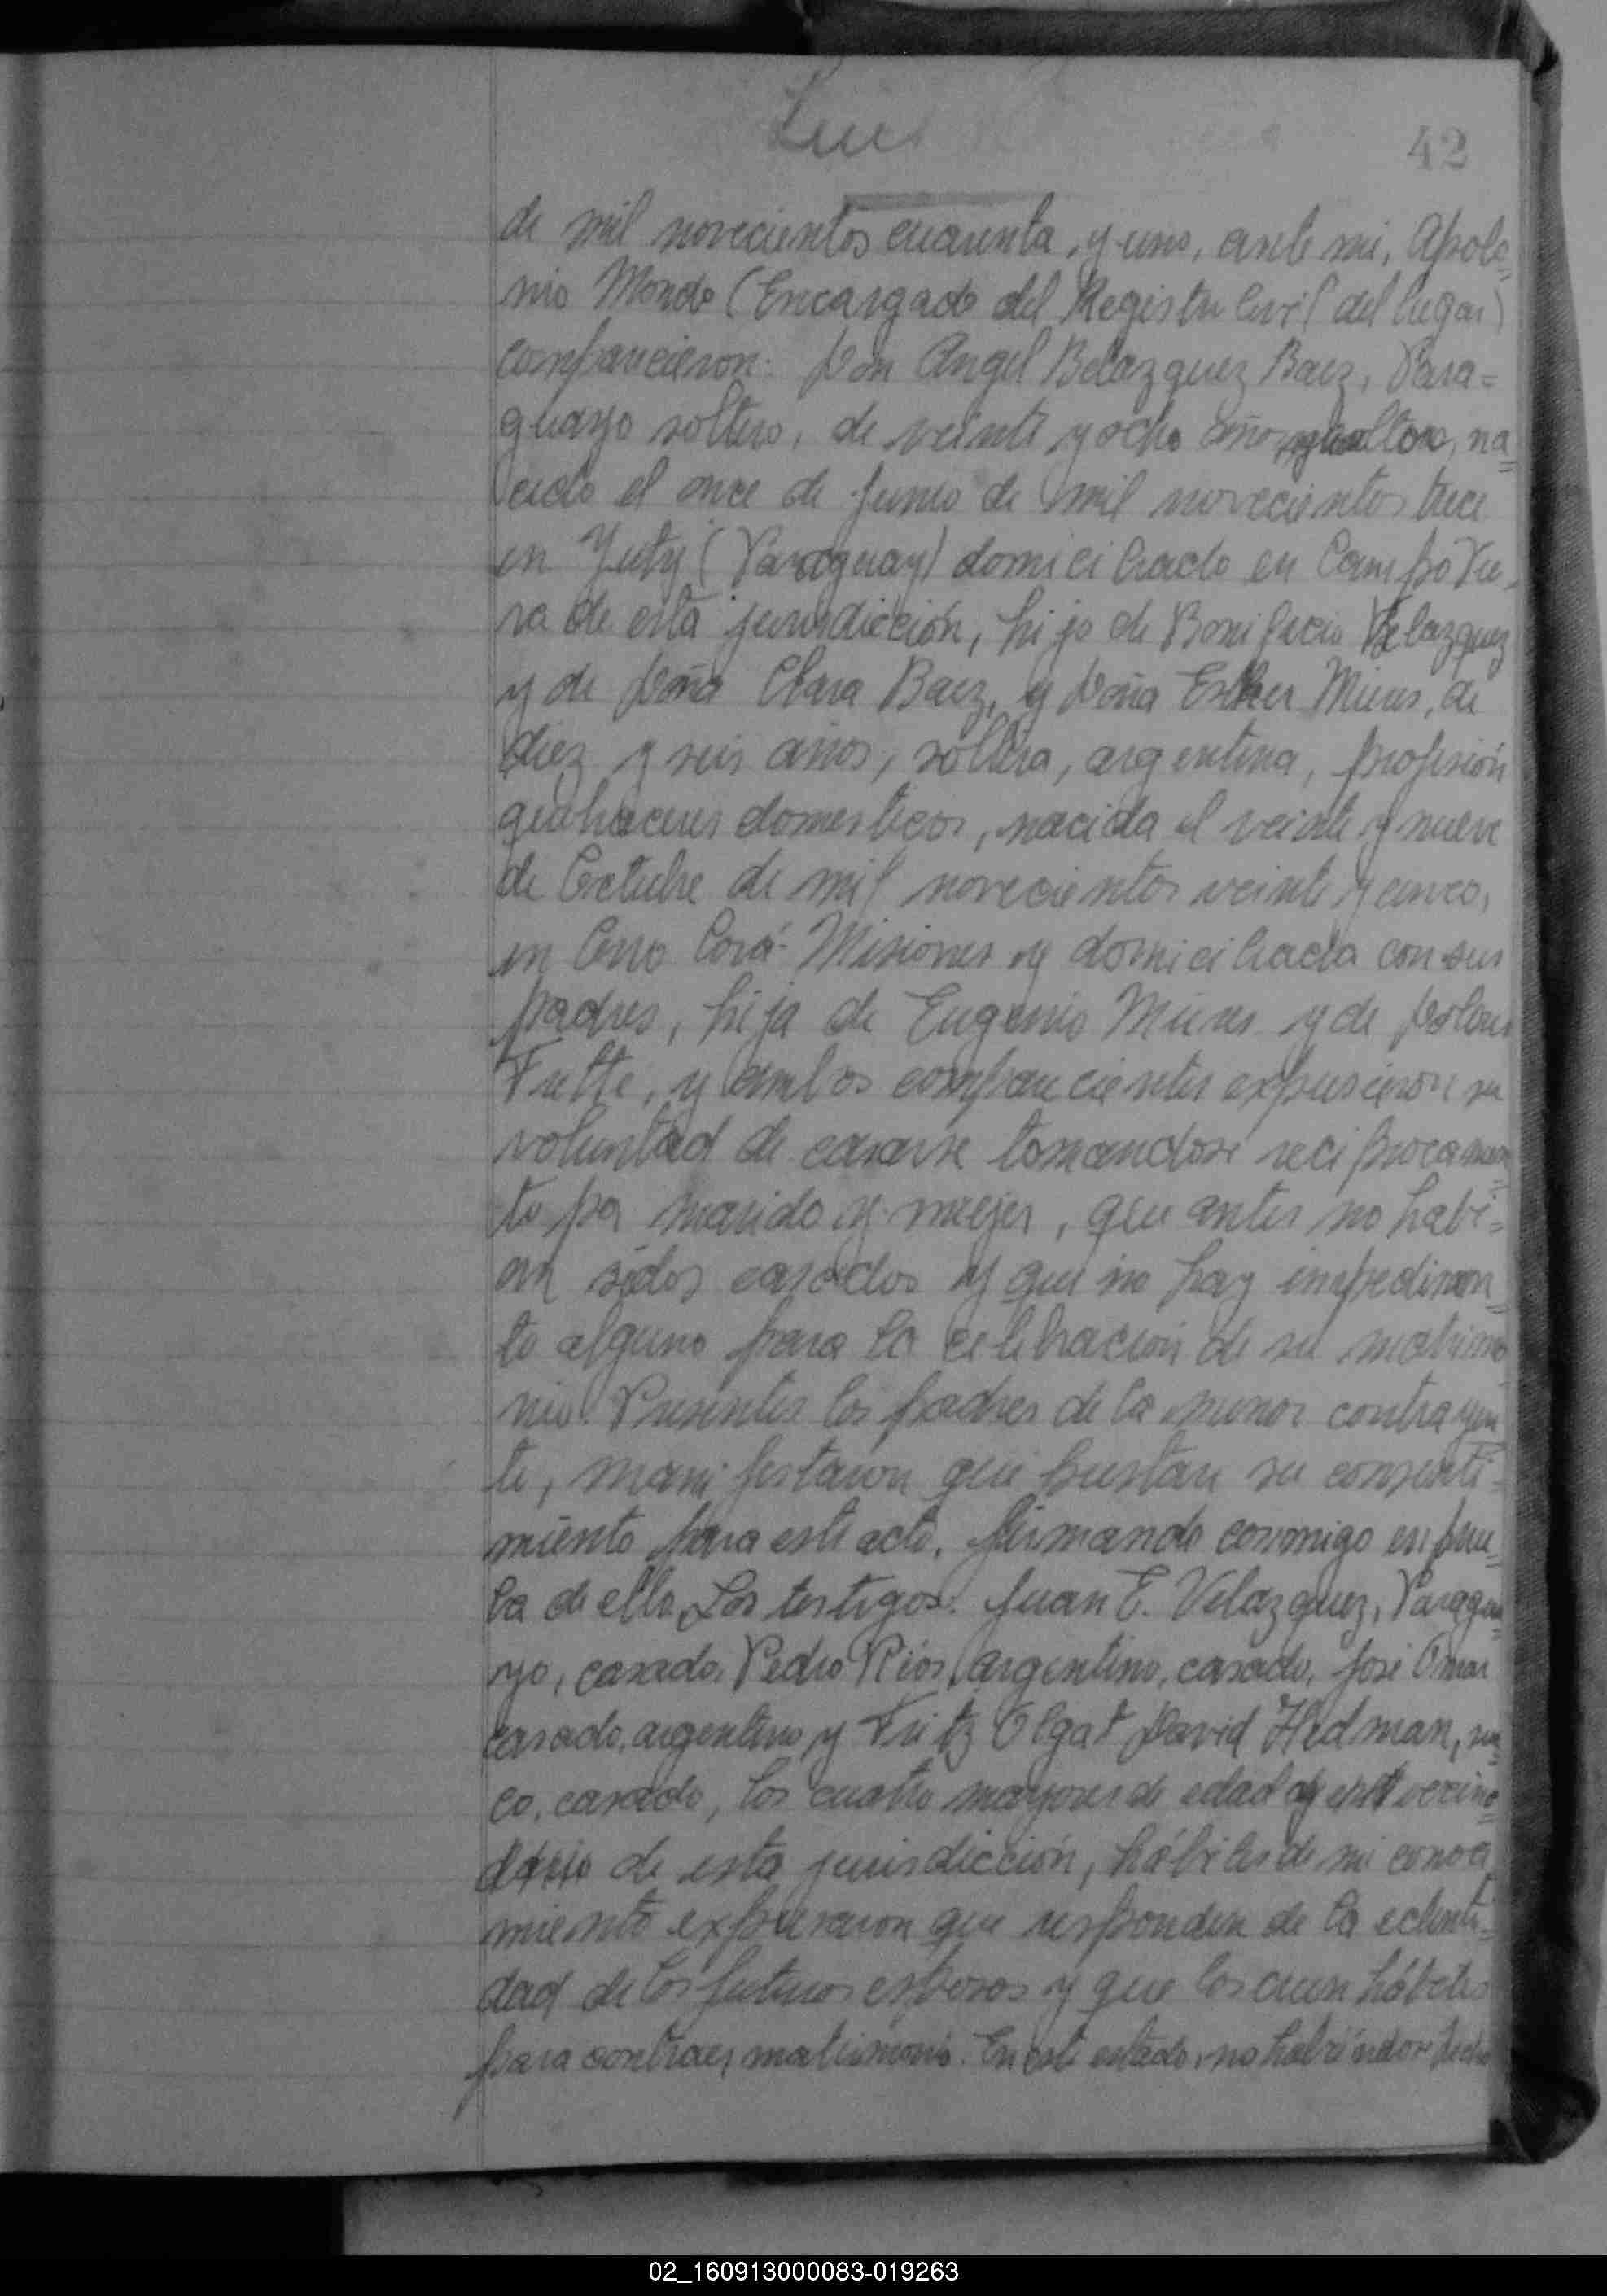 42
de mil novecientos cuarenta, y uno, ante mi, Apolo=
nio Mondo (Encargado del Registro Civil del lugar)
comparecieron: Don Angel Belazquez Baez, Para=
guayo soltero, de veinte y ocho años, na=
cido el once de Junio de mil novecientos trece
en Yuty (Paraguay) domiciliado en Campo Vie-
ra de esta jurisdicción, hijo de Bonifacio Velazquez
y de Doña Clara Baez, y Doña Esther Mieres, de
diez y seis años, soltera, argentina, profesión
quehaceres domesticos, nacida el veinte y nueve
de Octubre de mil novecientos veinte y cinco,
en Cerro Corá- Misiones y domiciliada con sus
padres, hija de Eugenio Mieres y de Dolores
y ambos comparecientes expusieron su
voluntad de casarse tomandose reciprocamen=
te por marido y mujer, que antes no habi=
an sidos casados y que no hay impedimen=
to alguno para la celebración de su matrimo
nio. Presentes los padres de la menor contrayen
te, manifestaron que prestan su consenti=
miento para este acto, firmando conmigo en prue=
ba de ello. Los testigos: Juan E. Velazquez, Paragua=
yo, casado, Pedro Rios, argentino, casado, José Omar
casado, argentino y Fritz Olgat David Hedman, sue=
co, casado, los cuatro mayores de edad y vecino=
de esta jurisdicción, hábiles de mi conoci
miento expresaron que responden de la edenti=
dad de los futuros esposos y que los creen hábiles
para contraer matrimonio. En este estado, no habiéndose hecho
02_160913000083-019263